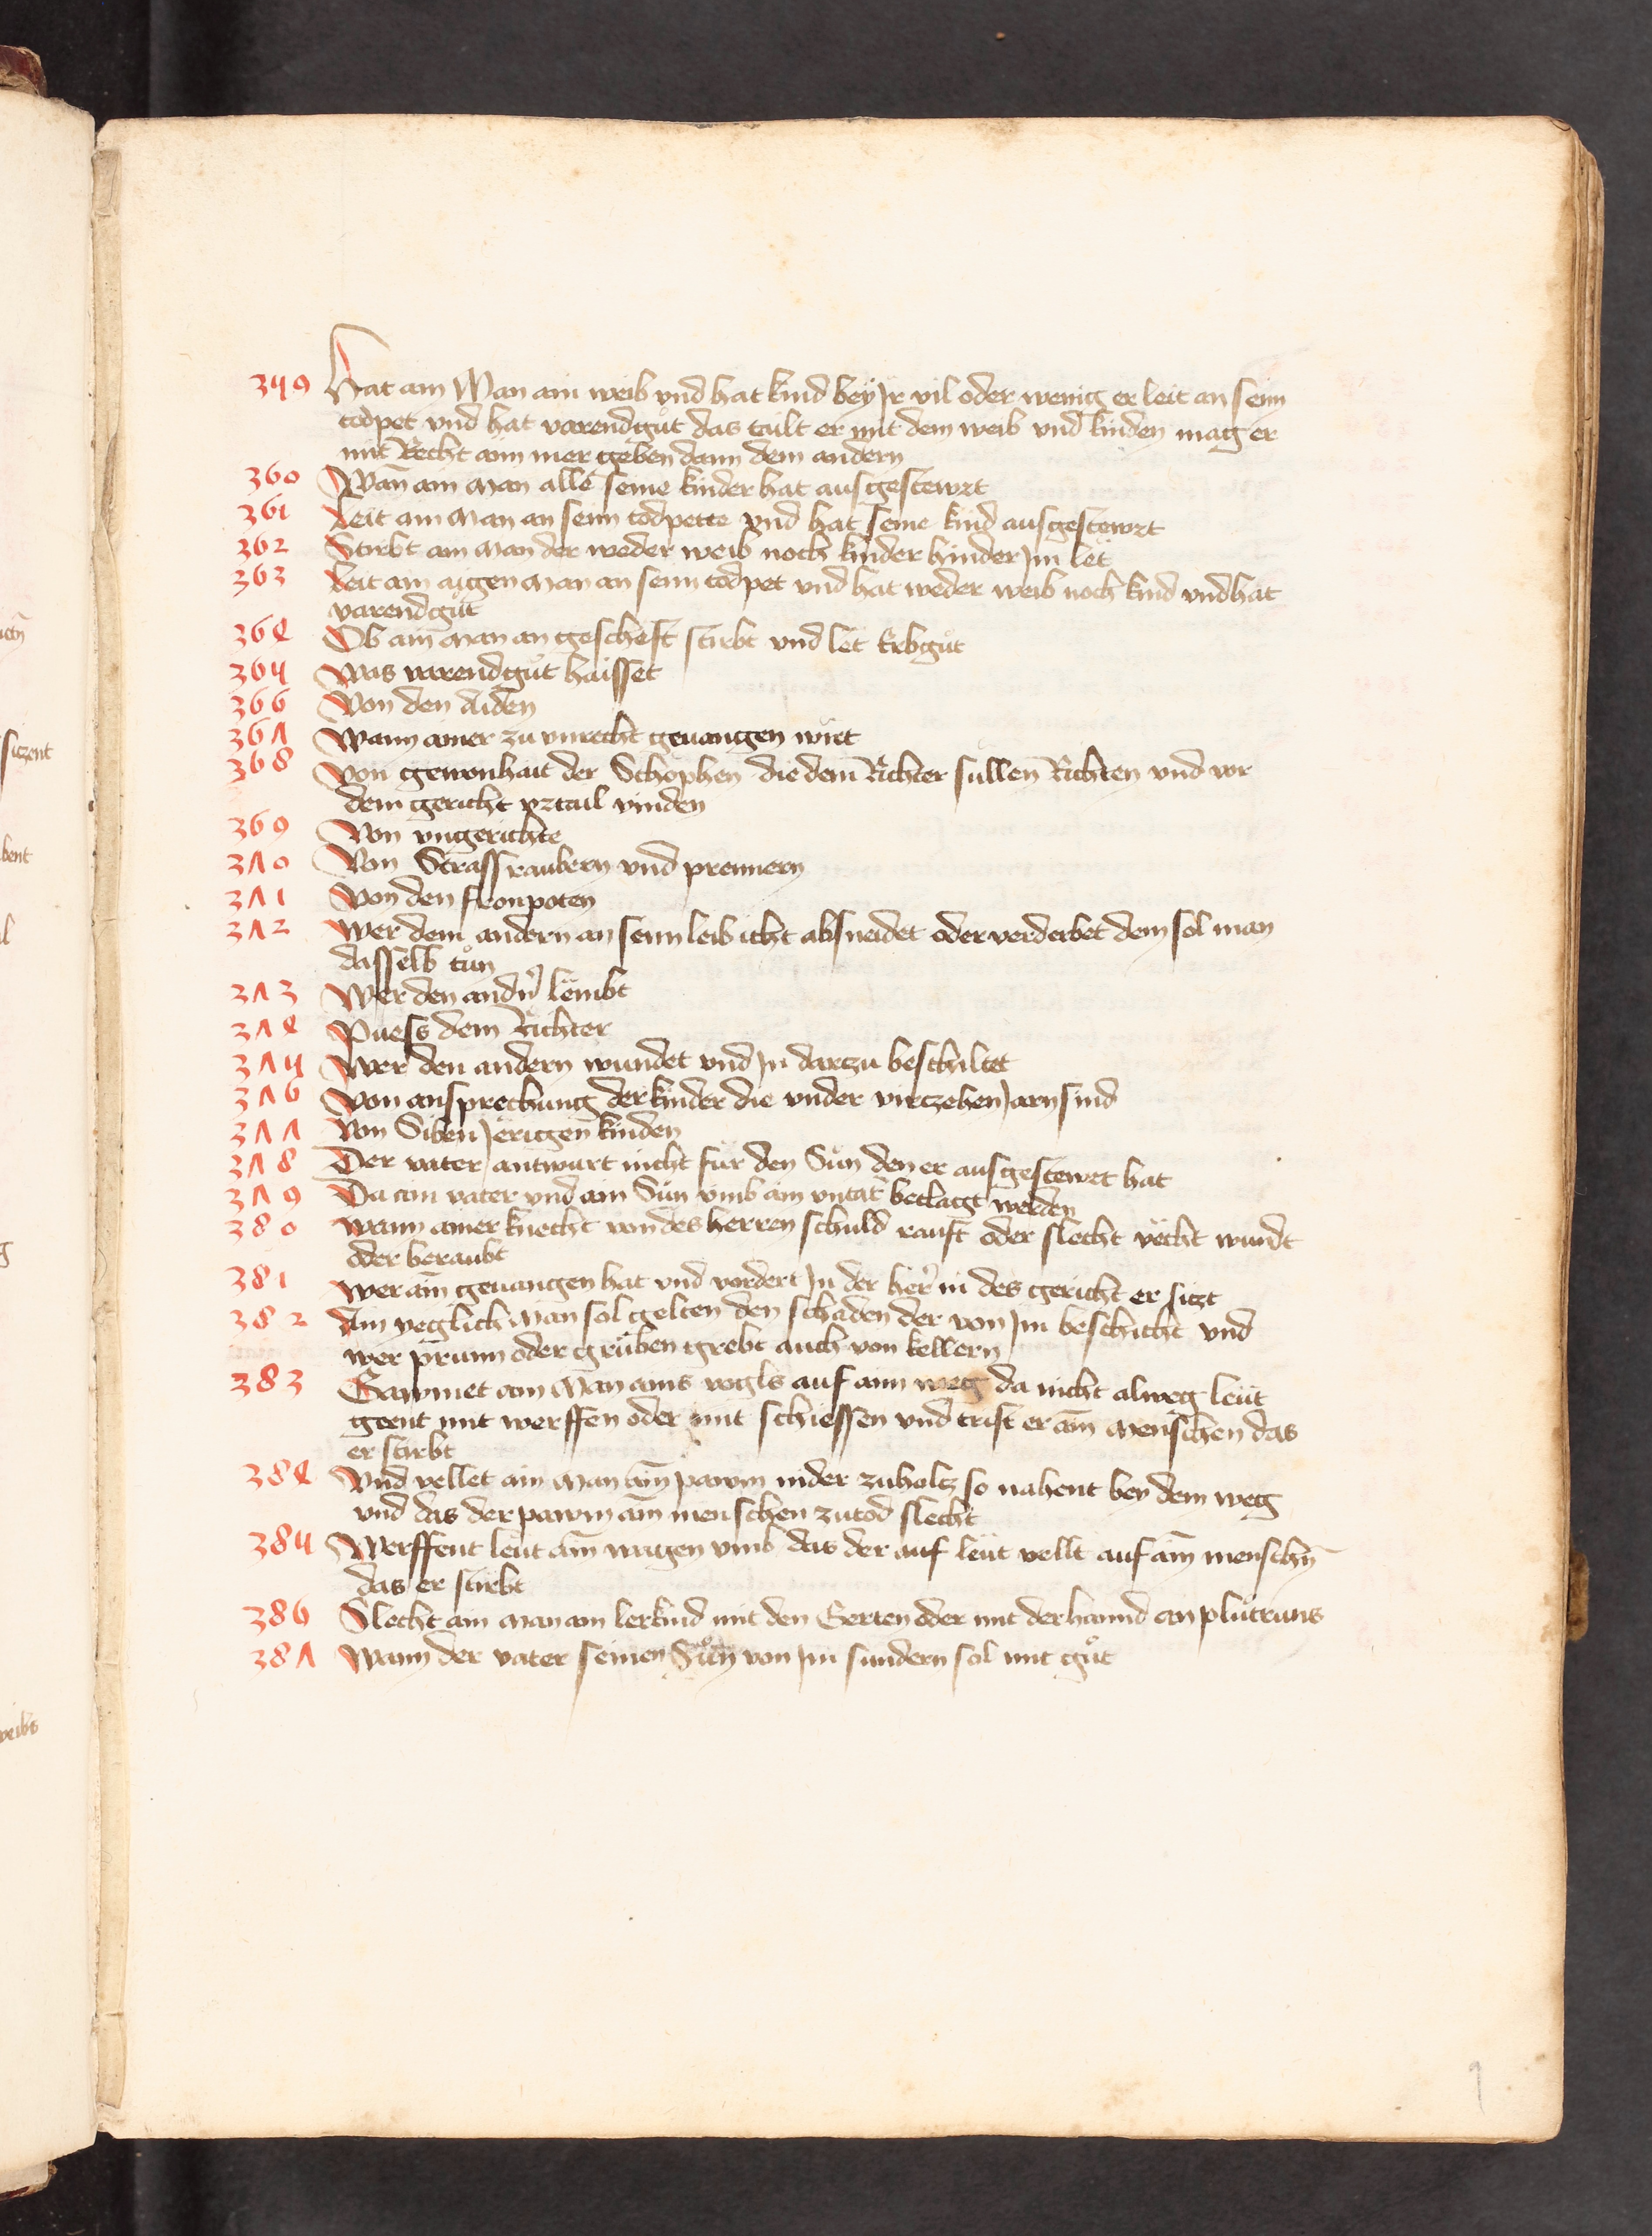 359 Hat ain Man ain weib vnd hat kind bey Jr vil oder wenig er leit an seim
todpet vnd hat varendgůt das tailt er mit dem weib vnd kinden mag er
mit Recht aim mer geben dann dem andern
360 Wan̄ ain man alle seine kinder hat ausgestewrt
361 Leit ain man an seim todpette vnd hat seine kind ausgestewrt
362 Stirbt ain man der weder weib noch kinder hinder Jm let
363 Leit ain aigen man an seim todpet vnd hat weder weib noch kind vnd hat
varendgůt
364 Ob ain man an gescheft stirbt vnd let Erbgůt
365 Was varendgůt haisset
366 Von den Aiden
367 Wann ainer zu vnrecht geuangen wirt
368 Von gewonhait der Schöphen die dem Richter sullen Richten vnd vor
dem gericht vrtail vinden
369 Von vngerichte
370 Von Strassraubern vnd prennern
371 Von den fronpoten
372 Wer dem andern an seim leib icht absneidet oder verderbet dem sol man
dasselb tůn
373 Wer den andn̄ lembt
374 Puess dem Richter
375 Wer den andern wundet vnd Jn darzu beschiltet
376 Von ansprechung der kinder die vnder virczehen Jarn sind
377 Von Siben Jerigen kinden
378 Der vater antwurt nicht für den Sun den er ausgestewrt hat
379 Da ain vater vnd ain Sun vmb ain vntat beclagt werden
380 Wann ainer knecht von des herren schuld rauft oder slecht vëcht wundt
oder beraubt
381 Wer ain̄ geuangen hat vnd vordert Jn der her̄ in des gericht er sitzt
382 Ain yeglich man sol gelten den schaden der von Jm beschicht vnd
wer prunn oder gruben grebt auch von kellern
383 Gawmet ain Man ains vogls auf aim weg da nicht alweg leüt
geent mit werffen oder mit schiessen vnd trift er ain̄ menschen das
er stirbt
384 Vnd vellet ain man ain̄ pawm nider zuholtz so nahent bey dem weg
vnd das der pawm ain̄ menschen zutod slecht
385 Werffent leüt ain̄ wagen vmb das der auf leüt vellt auf ain̄ menschn̄
das er stirbt
386 Slecht ain man ain lerkind mit den Gerten oder mit der hannd an plůtruns
387 Wann der vater seinen Sůn von Jm sundern sol mit gůt